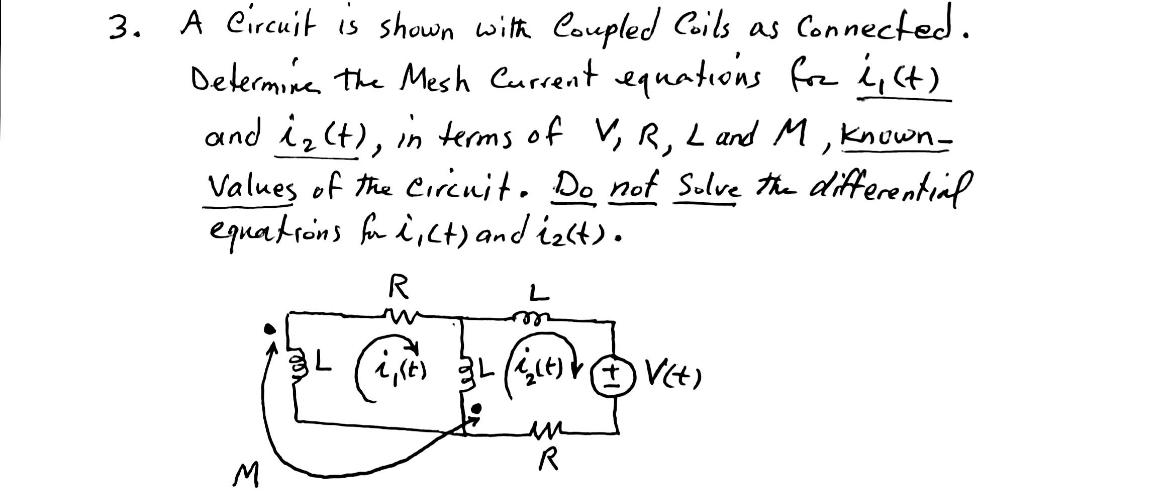 3. A Circuit is shown with Coupled Coils as Connected.
Determine the Mesh Current equations for i₁(t)
and i₂(t), in terms of V, R, L and M, Known-
Values of the Circuit. Do not Solve the differential
equations for i₁(t) and i₂(t).
R
L
L
i₁(t)
L
i₂(t)
+
-
V(t)
M
R